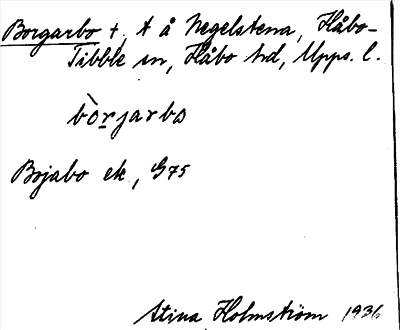 Borgarbo †, t å Negelstena, Håbo-
Tibble sn, Håbo hd, Upps. l.
bòrjarbo
Bojabo ek, G75
Stina Holmström 1936